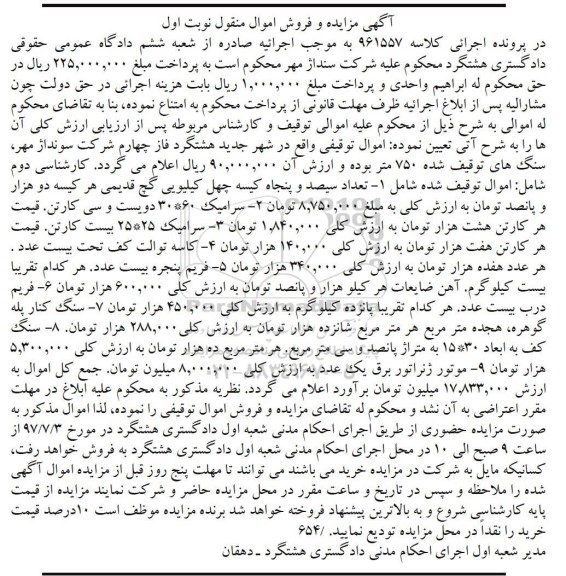 آگهی مزایده و فروش اموال منقول نوبت اول
در پرونده اجرائی کلاسه ۹۶۱۵۵۷ به موجب اجرائیه صادره از شعبه ششم دادگاه عمومی حقوقی
دادگستری هشتگرد محکوم علیه شرکت سنداژ مهر محکوم است به پرداخت مبلغ ۲۲۵,۰۰۰,۰۰۰ ریال در
حق محکوم له ابراهیم واحدی و پرداخت مبلغ ۱,۰۰۰,۰۰۰ ریال بابت هزینه اجرائی در حق دولت چون
مشارالیه پس از ابلاغ اجرائیه ظرف مهلت قانونی از پرداخت محکوم به امتناع نموده، بنا به تقاضای محکوم
له اموالی به شرح ذیل از محکوم علیه اموالی توقیف و کارشناس مربوطه پس از ارزیابی ارزش کلی آن
ها را به شرح آتی تعیین نموده: اموال توقیفی واقع در شهر جدید هشتگرد فاز چهارم شرکت سونداژ مهر،
سنگ های توقیف شده ۷۵۰ متر بوده و ارزش آن ۹۰,۰۰۰,۰۰۰ ریال اعلام می گردد. کارشناسی دوم
شامل: اموال توقیف شده شامل ۱- تعداد سیصد و پنجاه کیسه چهل کیلیویی گچ قدیمی هر کیسه دو هزار
و پانصد تومان به ارزش کلی به مبلغ ۸,۷۵۰,۰۰۰ تومان ۲- سرامیک ۶۰*۳۰ دویست و سی کارتن. قیمت
هر کارتن هشت هزار تومان به ارزش کلی ۱,۸۴۰,۰۰۰ تومان ۳- سرامیک ۲۵*۲۵ بیست کارتن. قیمت
هر کارتن هفت هزار تومان به ارزش کلی ۱۴۰,۰۰۰ هزار تومان ۴- کاسه توالت کف تحت بیست عدد .
هر عدد هفده هزار تومان به ارزش کلی ۳۴۰,۰۰۰ هزار تومان ۵- فریم پنجره بیست عدد. هر کدام تقریبا
بیست کیلوگرم. آهن ضایعات هر کیلو هزار و پانصد تومان به ارزش کلی ۶۰۰,۰۰۰ هزار تومان ۶- فریم
درب بیست عدد. هر کدام تقریبا پانزده کیلوگرم به ارزش کلی ۴۵۰,۰۰۰ هزار تومان ۷- سنگ کنار پله
گوهره، هجده متر مربع هر متر مربع شانزده هزار تومان به ارزش کلی ۲۸۸,۰۰۰ هزار تومان. ۸- سنگ
کف به ابعاد ۳۰*۱۵ به متراژ پانصد و سی متر مربع. هر متر مربع ده هزار تومان به ارزش کلی ۵,۳۰۰,۰۰۰
هزار تومان ۹- موتور ژنراتور برق یک عدد به ارزش کلی ۸,۰۰۰,۰۰۰ میلیون تومان. جمع کل اموال به
ارزش ۱۷,۸۳۳,۰۰۰ میلیون تومان برآورد اعلام می گردد. نظریه مذکور به محکوم علیه ابلاغ در مهلت
مقرر اعتراضی به آن نشد و محکوم له تقاضای مزایده و فروش اموال توقیفی را نموده، لذا اموال مذکور به
صورت مزایده حضوری از طریق اجرای احکام مدنی شعبه اول دادگستری هشتگرد در مورخ ۹۷/۷/۳ از
ساعت ۹ صبح الی ۱۰ در محل اجرای احکام مدنی شعبه اول دادگستری هشتگرد به فروش خواهد رفت،
کسانیکه مایل به شرکت در مزایده خرید می باشند می توانند تا مهلت پنج روز قبل از مزایده اموال آگهی
شده را ملاحظه و سپس در تاریخ و ساعت مقرر در محل مزایده حاضر و شرکت نمایند مزایده از قیمت
پایه کارشناسی شروع و به بالاترین پیشنهاد فروخته خواهد شد برنده مزایده موظف است ۱۰درصد قیمت
خرید را نقداً در محل مزایده تودیع نمایند. /۶۵۴
مدیر شعبه اول اجرای احکام مدنی دادگستری هشتگرد ـ دهقان